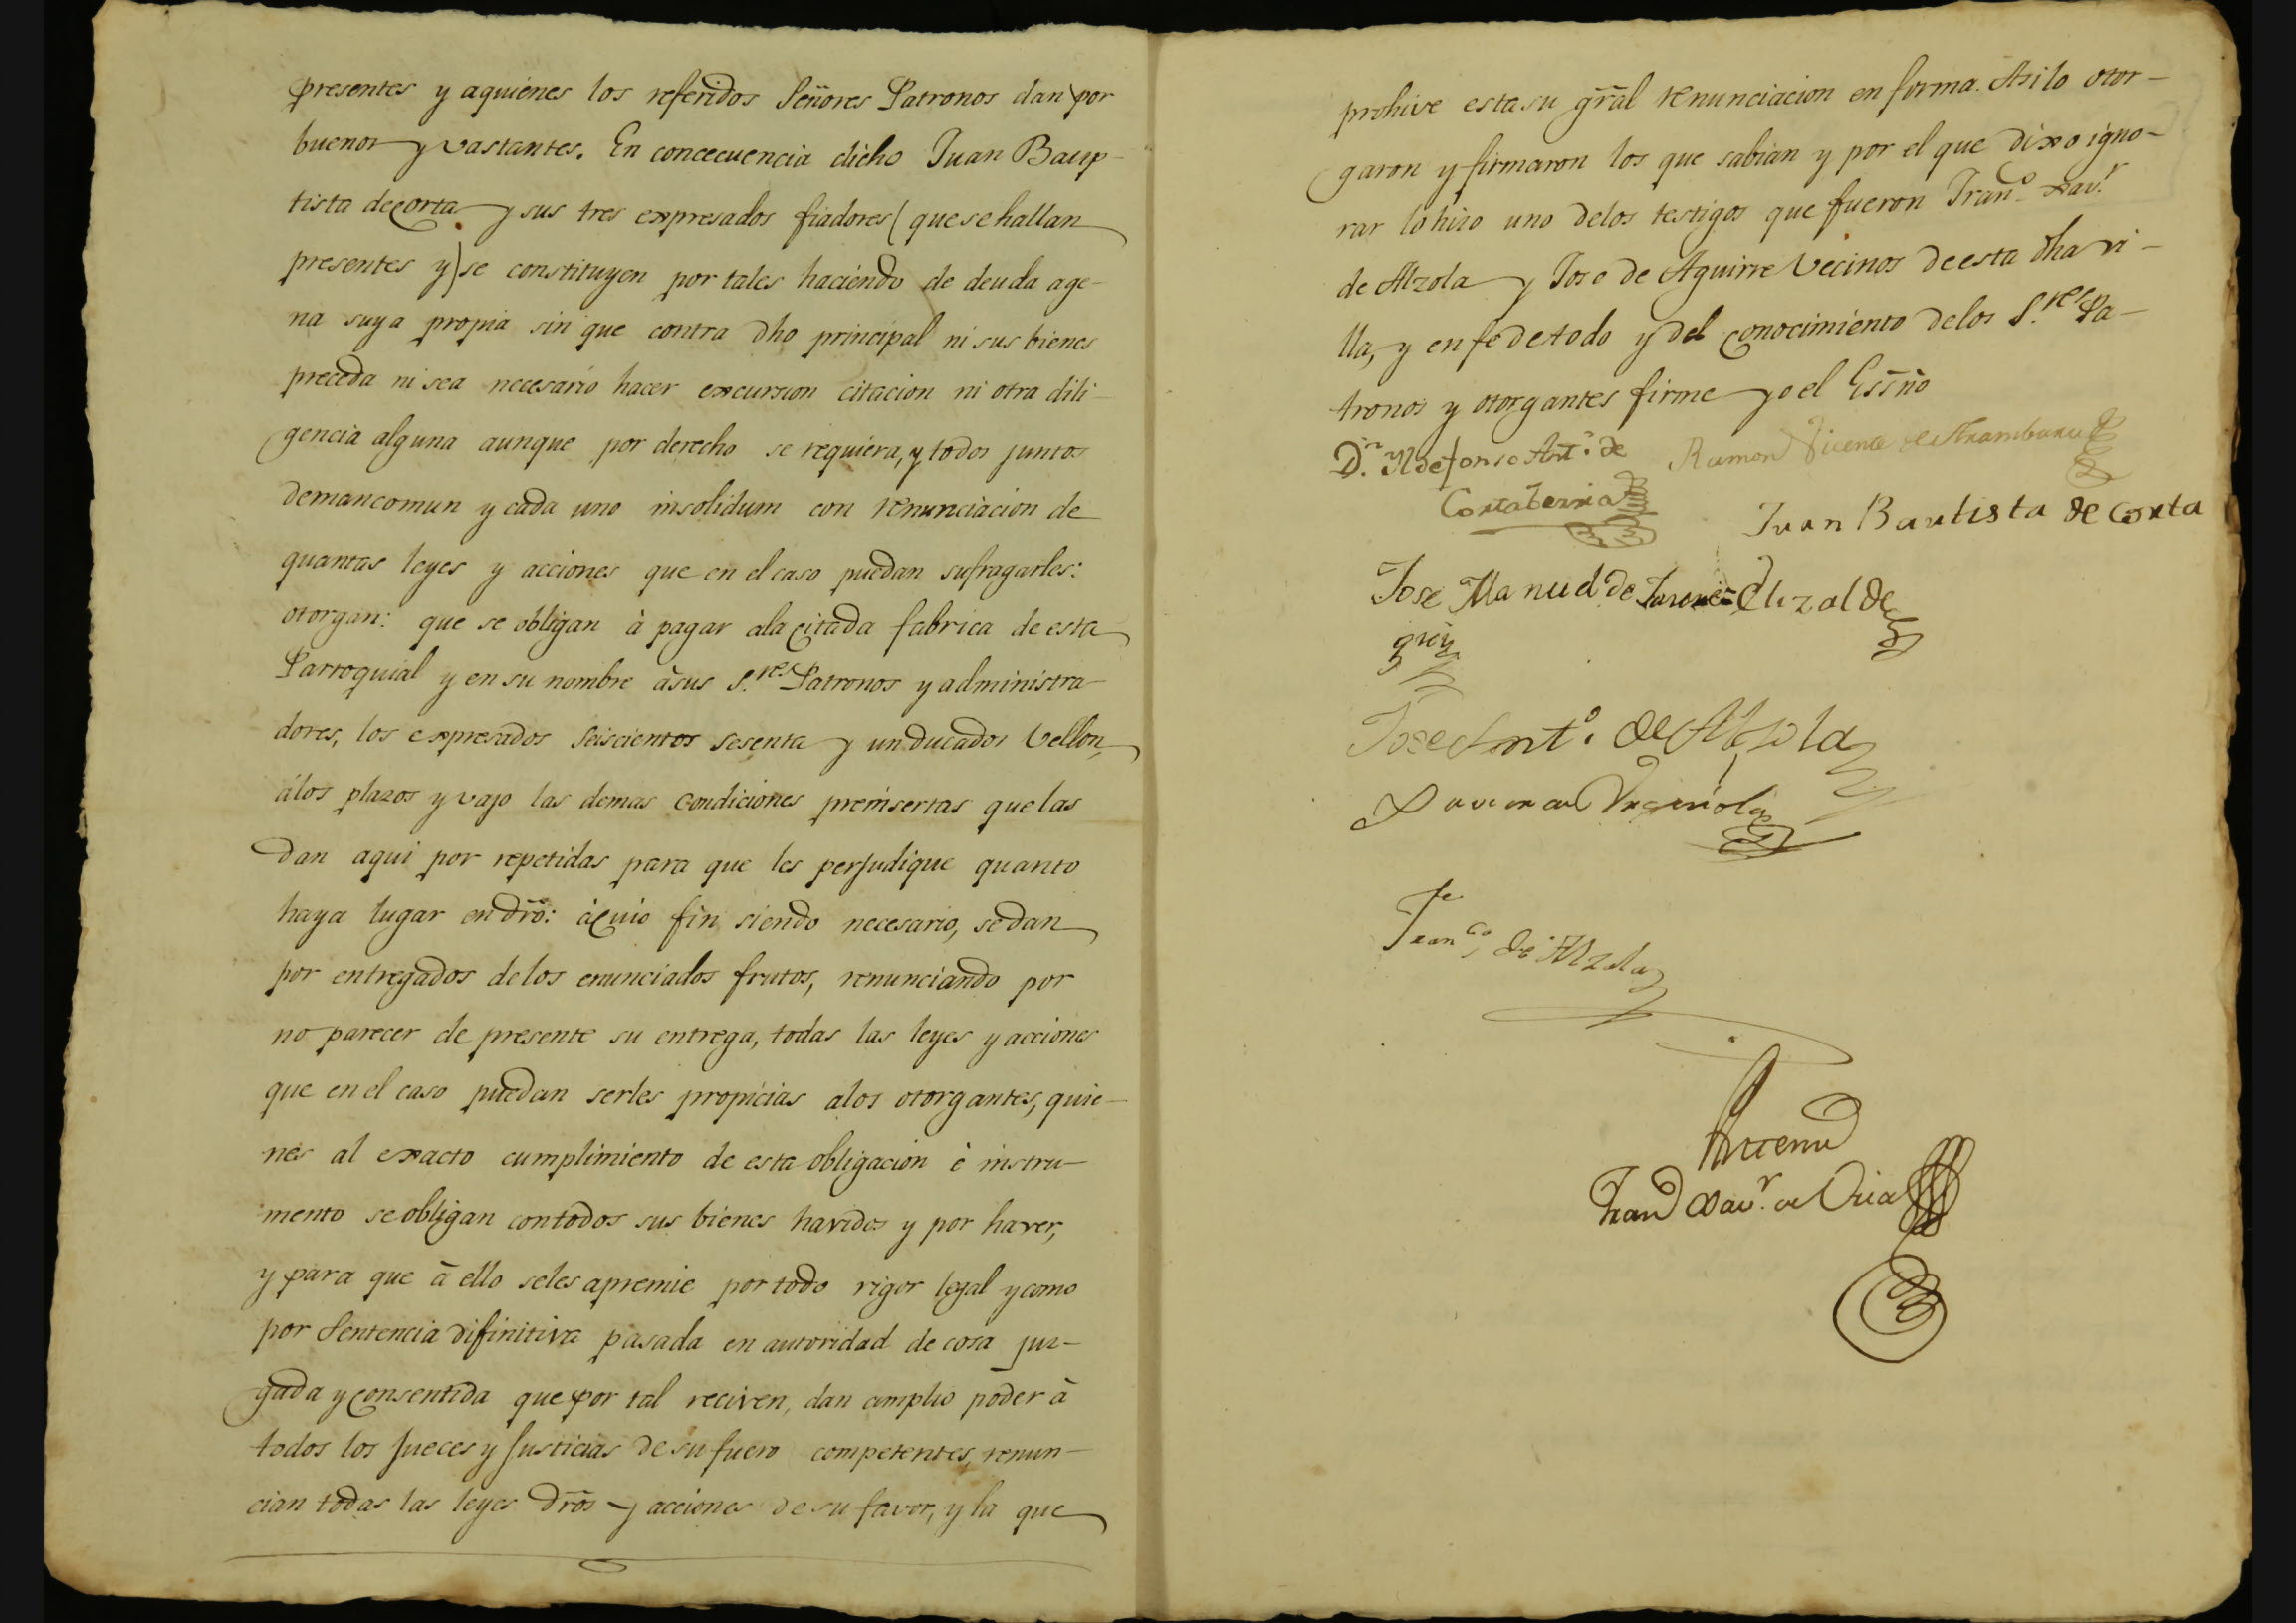 presentes y aquienes los referidos Señores Patronos dan por
buenos y vastantes. En concecuencia dicho Juan Baup-
tista decorta y sus tres expresados fiadores (que se hallan
presentes y) se constituyen por tales haciendo de deuda age-
na suya propia sin que contra dho principal ni sus bienes
preceda ni sea necesario hacer excursion citacion ni otra dili-
gencia alguna aunque por derecho se requiera, y todos juntos
demancomun y cada uno insolidum con renunciacion de
quantas leyes y acciones que en el caso puedan sufragarles:
otorgan: que se obligan à pagar ala citada fabrica de esta
Parroquial y en su nombre àsus S.res Patronos y administra-
dores, los expresados seiscientos sesenta y un ducados vellon,
álos plazos y vajo las demas condiciones preinsertas que las
dan aqui por repetidas para que les perjudique quanto
haya lugar en dr̃o: àcuio fin siendo necesario, sedan
por entregados delos enunciados frutos, renunciando por
no parecer de presente su entrega, todas las leyes y acciones
que en el caso puedan serles propicias alos otorgantes, quie-
nes al exacto cumplimiento de esta obligacion è instru-
mento se obligan contodos sus bienes havidos y por haver,
y para que à ello seles apremie por todo rigor legal y como
por sentencia difinitiva pasada en autoridad de cosa juz-
gada y consentida que por tal reciven, dan amplio poder à
todos los Jueces y Justicias de su fuero competentes, renun-
cian todas las leyes dr̃os y acciones de su favor, y la que
prohive esta su gr̃al renunciacion en forma. Asi lo otor-
garon y firmaron los que sabian y por el que dixo igno-
rar lo hizo uno delos testigos que fueron Fran.co Xav.r
de Alzola y Jose de Aguirre vecinos de esta dha vi-
lla, y en fe de todo y del conocimiento delos S.res Pa-
tronos y otorgantes firme yo el Essño
D.n Yldefonso Ant.o de
Cortaberria
Ramon Vicente de Aramburu
Juan Bautista de Corta
Jose Manuel de
Elizalde
Jose Ant.o de Alzola
Fran.co de Alzola
Antemi
Fran.co Xav.r de Oria